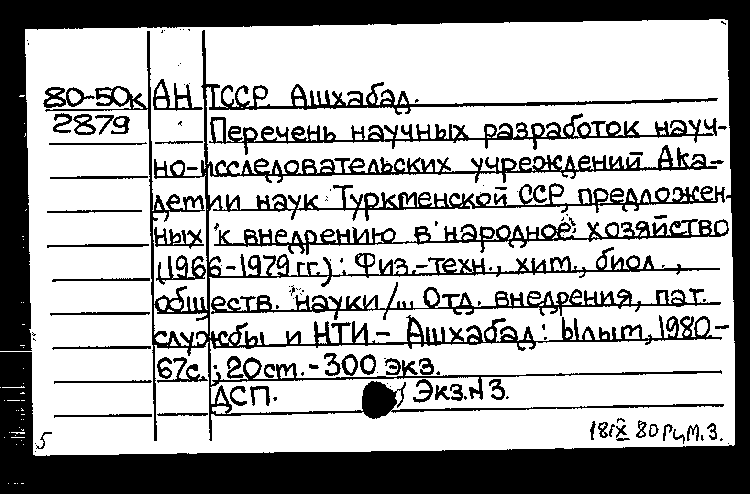 80-50к АН ТССР. Ашхабад.
2879 Перечень научных разработок науч-
но-исследовательских учреждений Ака-
демии наук Туркменской ССР, предложен-
ных к внедрению в народное хозяйство
(1966-1979 гг.): Физ.-техн., хим., биол.,
обществ. науки /... Отд. внедрения, пат.
службы и НТИ. - Ашхабад: Ылым, 1980.-
67с.; 20см. - 300 экз.
ДСП. Экз. N 3.
5 18IX 80